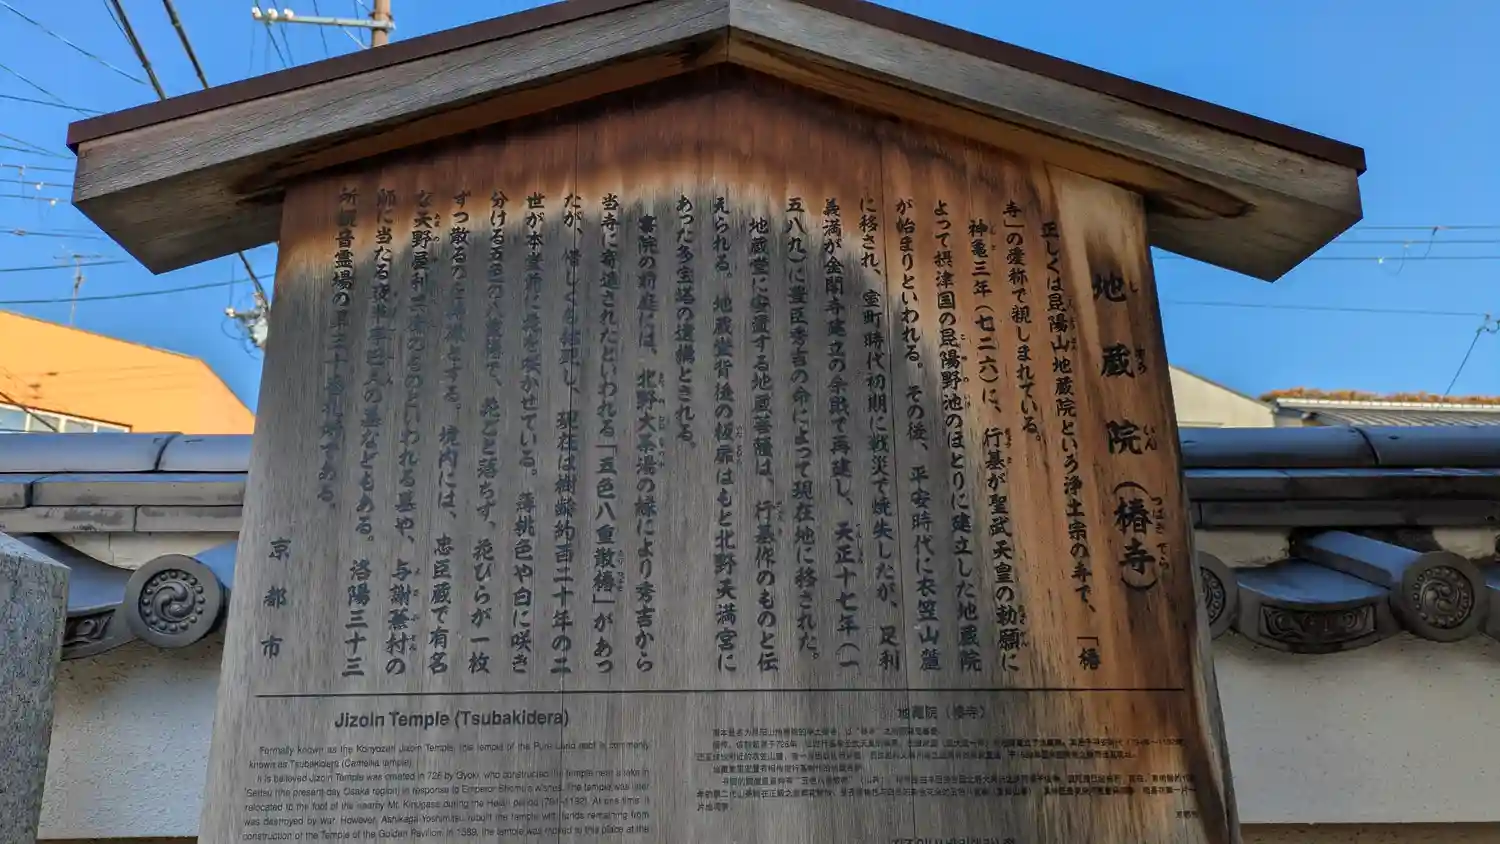 地蔵院（椿寺）
正しくは昆陽山地蔵院という浄土宗の寺で、「椿
寺」の愛称で親しまれている。
神亀三年（七二六）に、行基が聖武天皇の勅願に
よって摂津国の昆陽野池のほとりに建立した地蔵院
が始まりといわれる。その後、平安時代に衣笠山麓
に移され、室町時代初期に戦災で焼失したが、足利
義満が金閣寺建立の余財で再建し、天正十七年（一
五八九）に豊臣秀吉の命によって現在地に移された。
地蔵堂に安置する地蔵菩薩は、行基作のものと伝
えられる。地蔵堂背後の板扉はもと北野天満宮に
あった多宝塔の遺構とされる。
書院の前庭には、北野大茶湯の縁により秀吉から
当寺に寄進されたといわれる「五色八重散椿」があっ
たが、惜しくも枯死し、現在は樹齢約百二十年の二
世が本堂前に花を咲かせている。薄桃色や白に咲き
分ける五色の八重椿で、花ごと落ちず、花びらが一枚
ずつ散るのを特徴とする。境内には、忠臣蔵で有名
な天野屋利兵衛のものといわれる墓や、与謝蕪村の
師に当たる夜半亭巴人の墓などもある。洛陽三十三
所観音霊場の第三十番札所である。
京都市
Jizoin Temple (Tsubakidera)
Formally known as the Konyozan Jizoin Temple, the temple of the Pure Land sect is commonly
known as Tsubakidera (Camellia temple).
It is believed Jizoin Temple was created in 726 by Gyoki, who constructed the temple near a lake in
Settsu (the present day Osaka region) in response to Emperor Shomu's wishes. The temple was later
relocated to the foot of the nearby Mt. Kinugasa during the Heian period (794-1192). At one time it
was destroyed by war. However, Ashikaga Yoshimitsu rebuilt the temple with funds remaining from
construction of the Temple of the Golden Pavilion. In 1589, the temple was moved to this place at the
地藏院（椿寺）